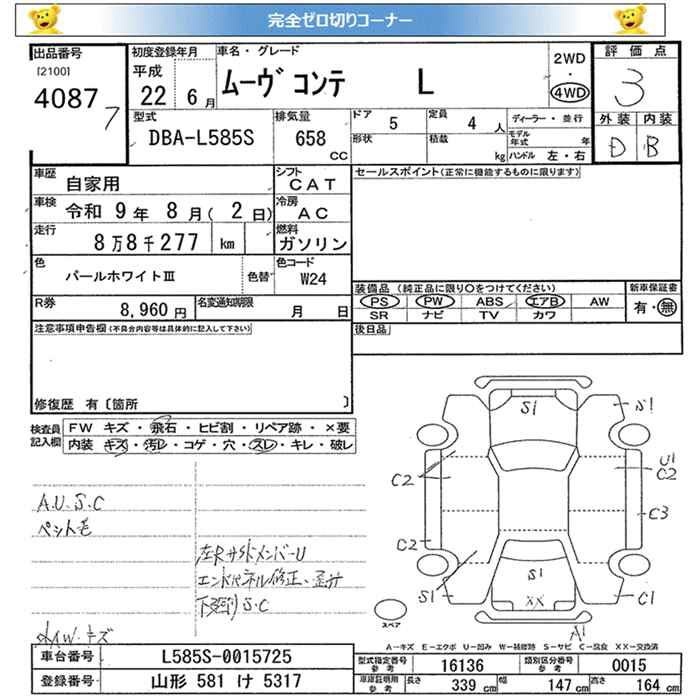 完全ゼロ切りコーナー
出品番号
[2100]
4087 7
初度登録年月
平成
22 6月
車名・グレード
ムーヴ コンテ L
2WD
・
4WD
評価点
3
外装 内装
D B
型式
DBA-L585S
排気量
658
CC
ドア
5
形状
定員
4人
積載
kg
ディーラー・並行
モデル年式 年
ハンドル 左・右
車歴
自家用
シフト
CAT
車検
令和 9年 8月( 2日)
冷房
AC
走行
8万8千277 km
燃料
ガソリン
色
パールホワイトⅢ
色替
色コード
W24
R券
8,960円
名変通知期限
月 日
セールスポイント(正常に機能するものに限ります)
装備品(純正品に限り○をつけてください)
PS PW ABS エアB AW
SR ナビ TV カワ
新車保証書
有・無
後日品
注意事項申告欄(不具合内容等は具体的に記入して下さい)
修復歴 有〔箇所 〕
検査員記入欄
FW キズ・飛石・ヒビ割・リペア跡・×要
内装 キズ・汚レ・コゲ・穴・スレ・キレ・破レ
A.U.S.C
ペット毛
左RサイドメンバーU
エンドパネル修正、歪ミ
下廻り S.C
キズ
S1
S1
C2
U1
C2
C3
C2
S1
S1
XX
C1
A1
スペア
A-キズ E-エクボ U-凹み W-補修跡 S-サビ C-腐食 XX-交換済
車台番号
L585S-0015725
登録番号
山形 581 け 5317
型式指定番号
参考
16136
類別区分番号
参考
0015
車庫証明用
参考
長さ 339cm
幅 147cm
高さ 164cm